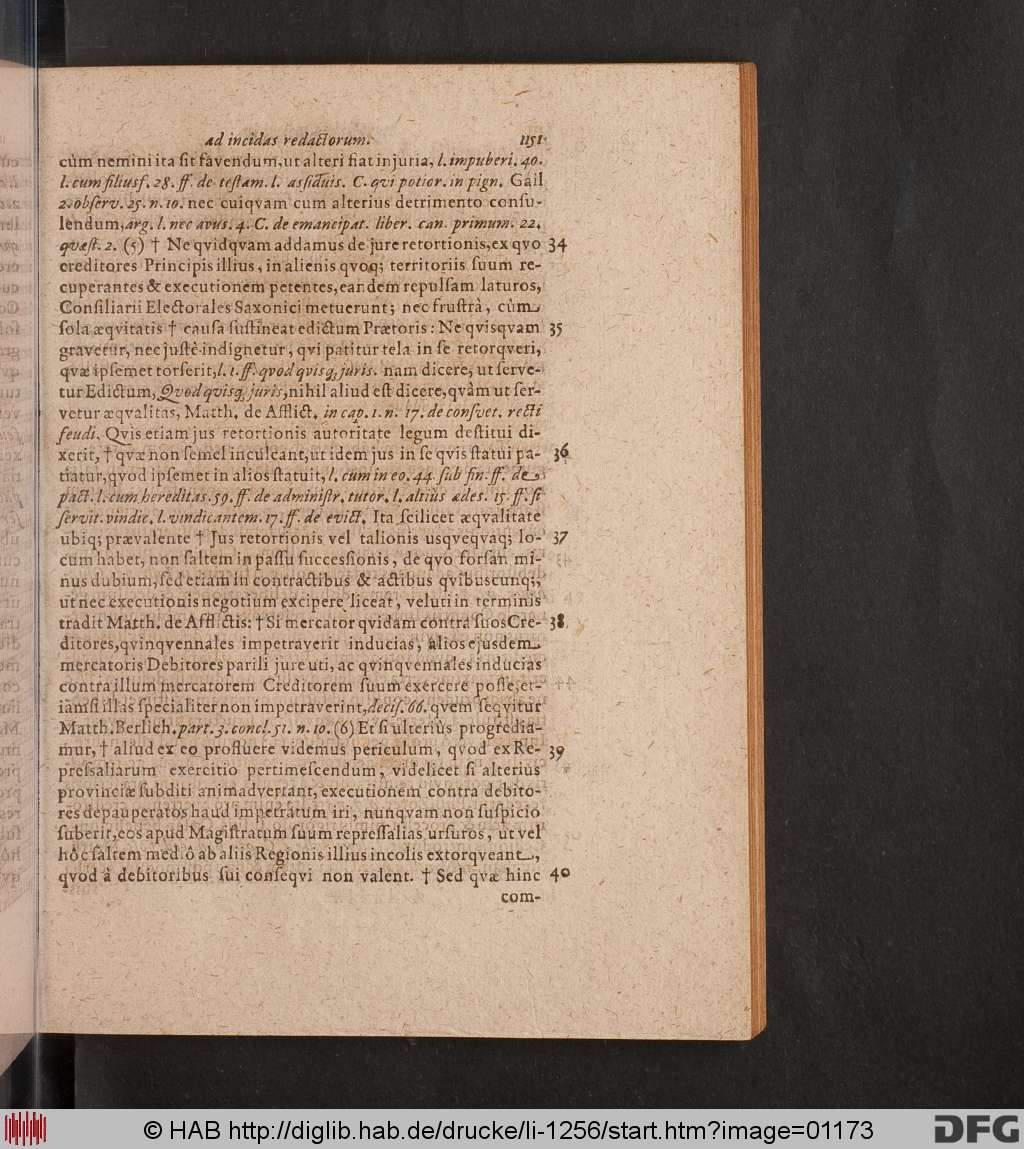 ad incidas redactorum. 1151
cùm nemini ita ſit favendum, ut alteri fiat injuria, l. impuberi. 40.
l. cum filiusf. 28. ff. de teſtam. l. aſsiduis. C. qvi potior. in pign. Gail
2. obſerv. 25. n. 10. nec cuiqvam cum alterius detrimento conſu-
lendum, arg. l. nec avus. 4. C. de emancipat. liber. can. primum. 22.
qvæſt. 2. (5) † Ne qvidqvam addamus de jure retortionis, ex qvo 34
creditores Principis illius, in alienis qvoq; territoriis ſuum re-
cuperantes & executionem petentes, eandem repulſam laturos,
Conſiliarii Electorales Saxonici metuerunt; nec fruſtrà, cùm
ſola æqvitatis † cauſa ſuſtineat edictum Prætoris: Ne qvisqvam 35
gravetur, nec juſtè indignetur, qvi patitur tela in ſe retorqveri,
qvæ ipſemet torſerit, l. 1. ff. qvod qvisq; juris. nam dicere, ut ſerve-
tur Edictum, Qvod qvisq; juris, nihil aliud eſt dicere, qvàm ut ſer-
vetur æqvalitas, Matth. de Afflict. in cap. 1. n. 17. de conſvet. recti
feudi. Qvis etiam jus retortionis autoritate legum deſtitui di-
xerit, † qvæ non ſemel inculcant, ut idem jus in ſe qvis ſtatui pa- 36
tiatur, qvod ipſemet in alios ſtatuit, l. cùm in eo. 44. ſub fin. ff. de
pact. l. cum hereditas. 59. ff. de adminiſtr. tutor. l. altiùs ædes. 15. ff. ſi
ſervit. vindic. l. vindicantem. 17. ff. de evict. Ita ſcilicet æqvalitate
ubiq; prævalente † Jus retortionis vel talionis usqveqvaq; lo- 37
cum habet, non ſaltem in paſſu ſucceſsionis, de qvo forſan mi-
nus dubium, ſed etiam in contractibus & actibus qvibuscunq;,
ut nec executionis negotium excipere liceat, veluti in terminis
tradit Matth. de Afflictis: † Si mercator qvidam contra ſuos Cre- 38
ditores, qvinqvennales impetraverit inducias, alios ejusdem
mercatoris Debitores parili jure uti, ac qvinqvennales inducias
contra illum mercatorem Creditorem ſuum exercere poſſe, et-
iamſi illas ſpecialiter non impetraverint, deciſ. 66. qvem ſeqvitur
Matth. Berlich. part. 3. concl. 51. n. 10. (6) Et ſi ulteriùs progredia-
mur, † aliud ex eo profluere videmus periculum, qvod ex Re- 39
preſſaliarum exercitio pertimeſcendum, videlicet ſi alterius
provinciæ ſubditi animadvertant, executionem contra debito-
res depauperatos haud impetratum iri, nunqvam non ſuſpicio
ſuberit, eos apud Magiſtratum ſuum repreſſalias urſuros, ut vel
hôc ſaltem mediô ab aliis Regionis illius incolis extorqveant,
qvod à debitoribus ſui conſeqvi non valent. † Sed qvæ hinc 40
com-
© HAB http://diglib.hab.de/drucke/li-1256/start.htm?image=01173
DFG